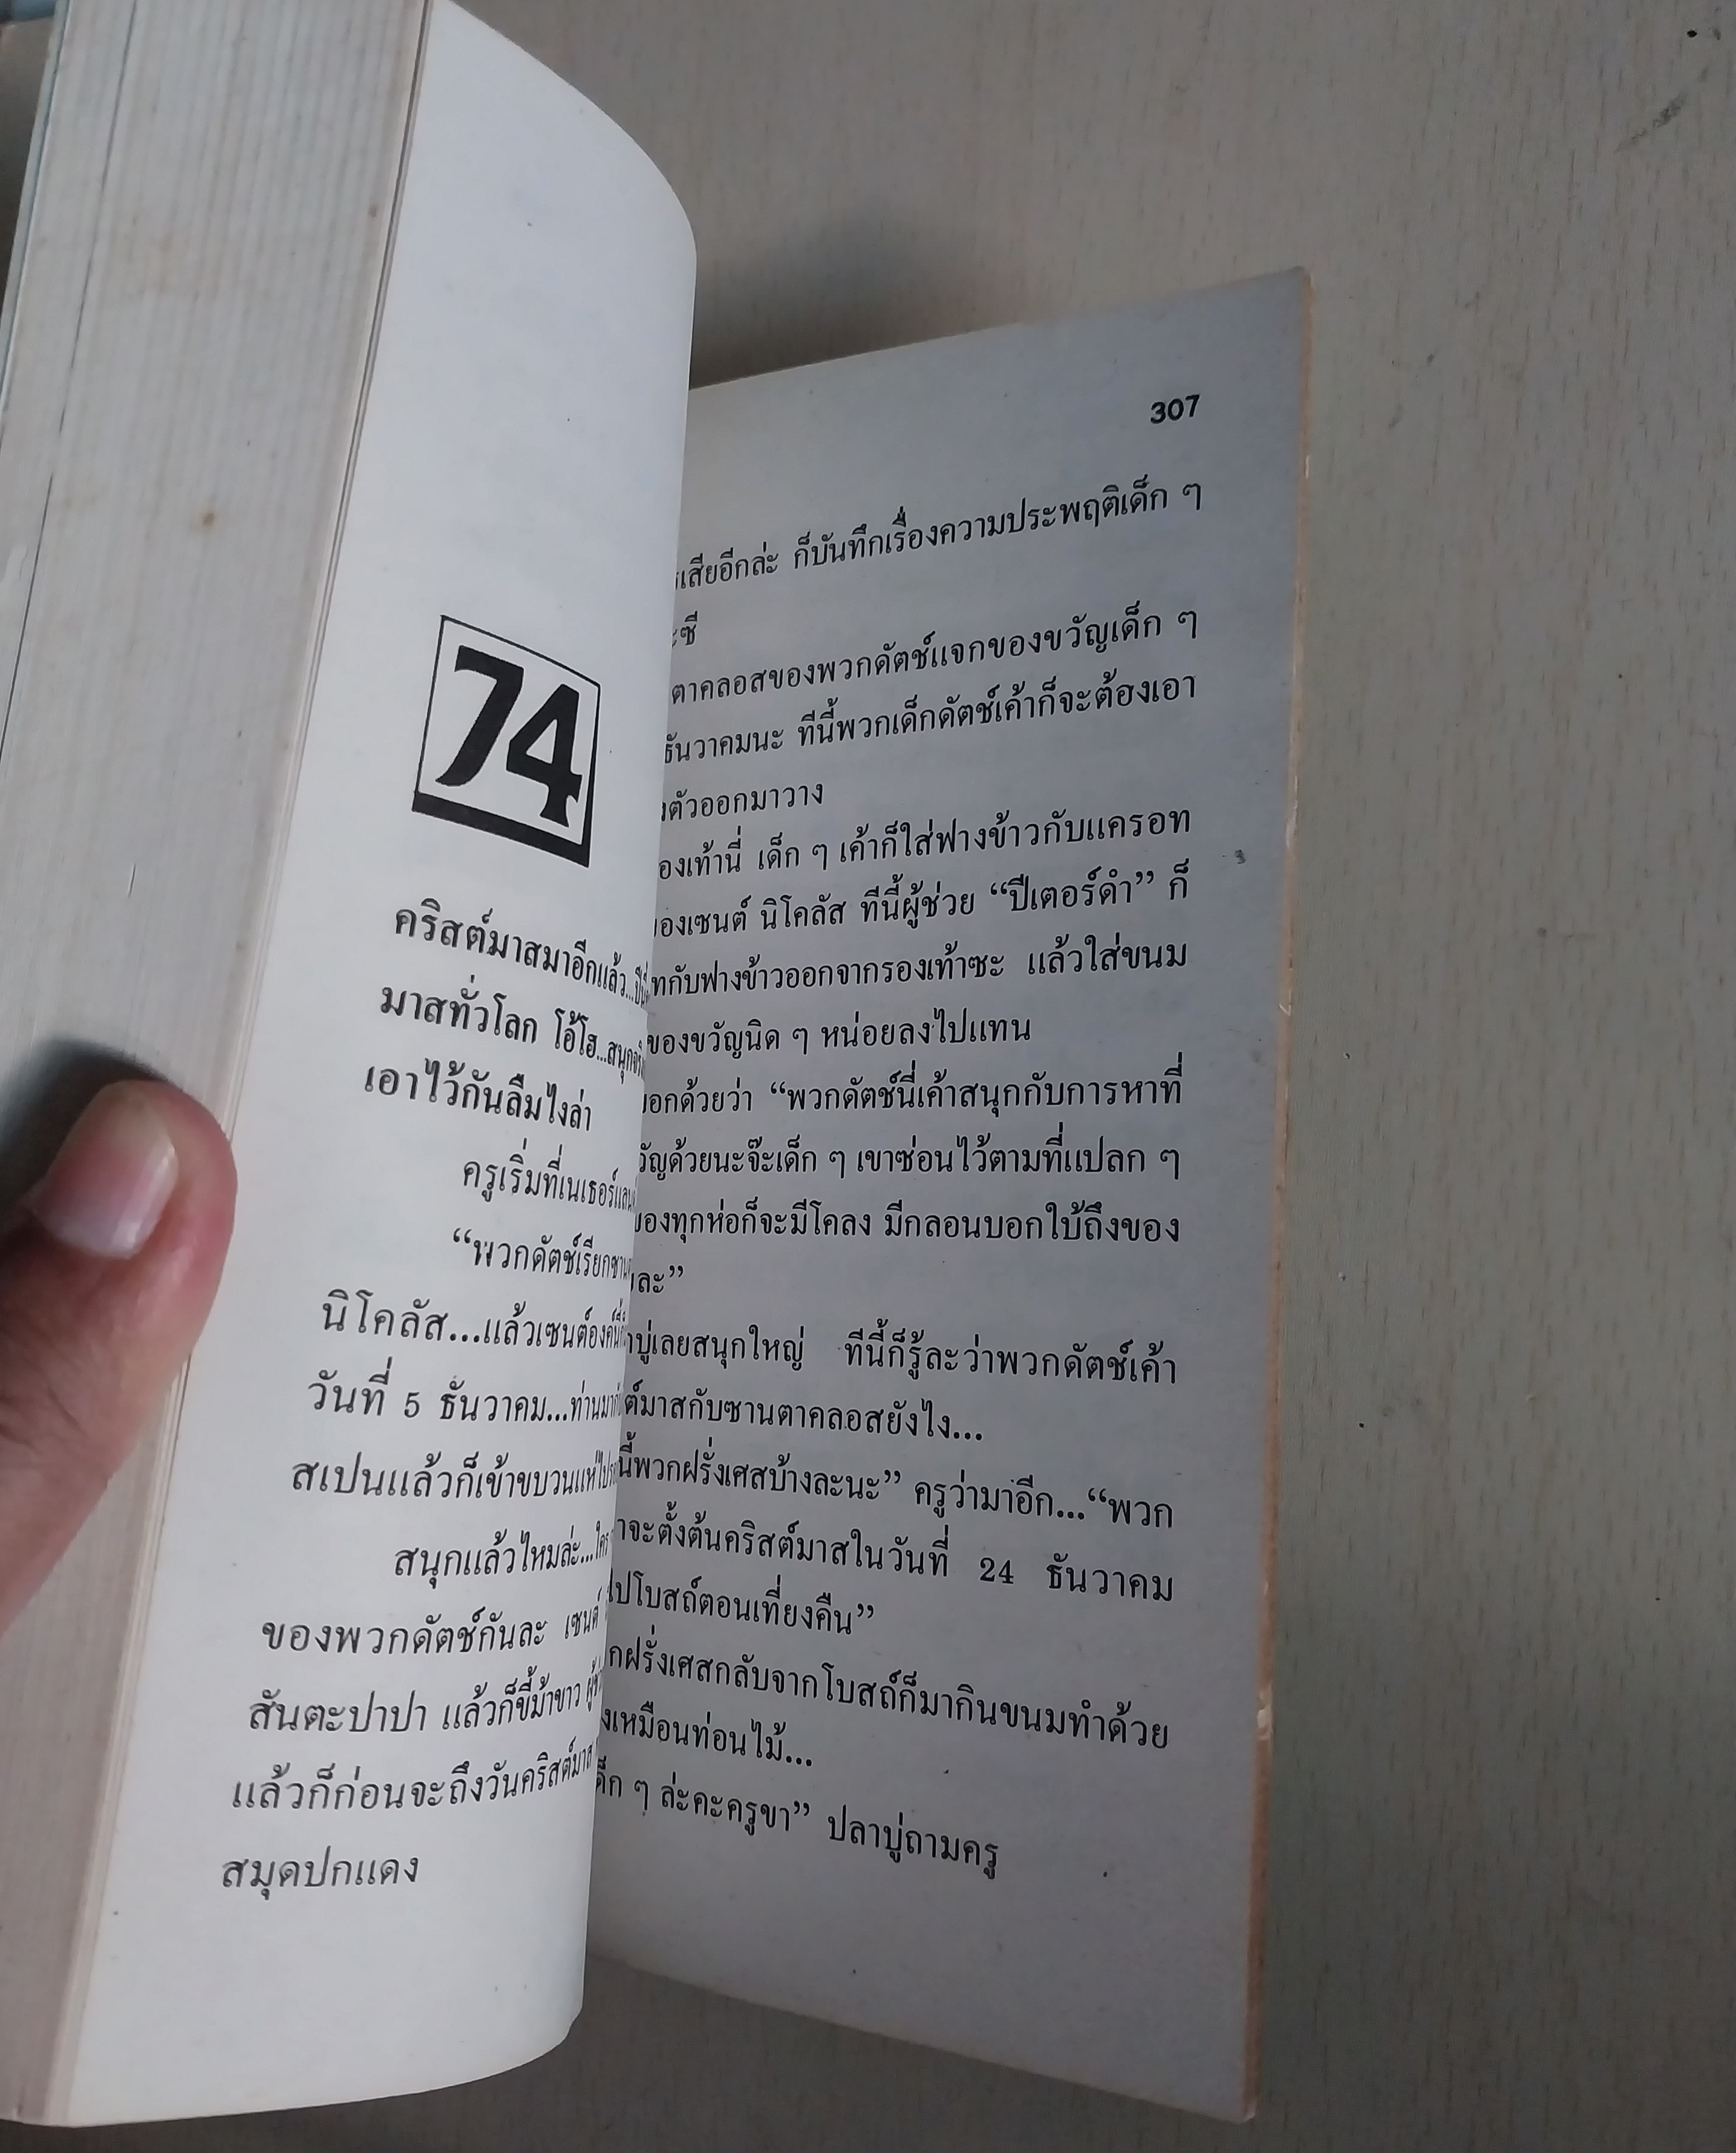 74
คริสต์มาสมาอีกแล้ว...
มาสทั่วโลก โอ้โฮ...
เอาไว้กันลืมไงล่า
ครูเริ่มที่เนเธอร์แลน
“พวกดัตช์เรียกซาน
นิโคลัส...แล้วเซนต์องค์นี้
วันที่ 5 ธันวาคม...ท่านมา
สเปนแล้วก็เข้าขบวนแห่ไป
สนุกแล้วไหมล่ะ...ใคร
ของพวกดัตช์กันละ เซนต์
สันตะปาปา แล้วก็ขี่ม้าขาว
แล้วก็ก่อนจะถึงวันคริสต์มาส
สมุดปกแดง
307
เสียอีกล่ะ ก็บันทึกเรื่องความประพฤติเด็ก ๆ
ะซี
ตาคลอสของพวกดัตช์แจกของขวัญเด็ก ๆ
ธันวาคมนะ ทีนี้พวกเด็กดัตช์เค้าก็จะต้องเอา
ตัวออกมาวาง
องเท้านี่ เด็ก ๆ เค้าก็ใส่ฟางข้าวกับแครอท
ของเซนต์ นิโคลัส ทีนี้ผู้ช่วย “ปีเตอร์ดำ” ก็
ทกับฟางข้าวออกจากรองเท้าซะ แล้วใส่ขนม
ของขวัญนิด ๆ หน่อยลงไปแทน
บอกด้วยว่า “พวกดัตช์นี่เค้าสนุกกับการหาที่
วัญด้วยนะจ๊ะเด็ก ๆ เขาซ่อนไว้ตามที่แปลก ๆ
ของทุกห่อก็จะมีโคลง มีกลอนบอกใบ้ถึงของ
ละ”
บู่เลยสนุกใหญ่ ทีนี้ก็รู้ละว่าพวกดัตช์เค้า
ต์มาสกับซานตาคลอสยังไง...
นี้พวกฝรั่งเศสบ้างละนะ” ครูว่ามาอีก...“พวก
าจะตั้งต้นคริสต์มาสในวันที่ 24 ธันวาคม
ไปโบสถ์ตอนเที่ยงคืน”
กฝรั่งเศสกลับจากโบสถ์ก็มากินขนมทำด้วย
งเหมือนท่อนไม้...
ด็ก ๆ ล่ะคะครูขา” ปลาบู่ถามครู